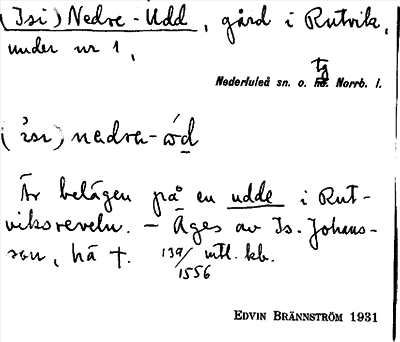 (Isi) Nedre-Udd, gård i Rutvik,
under nr 1,
tg
Nederluleå sn. o. hd. Norrb. l.
nedra-
Är belägen på en udde i Rut-
viksreveln. – Äges av Is. Johans-
son, hä †. 139/1556 mtl. kb.
EDVIN BRÄNNSTRÖM 1931